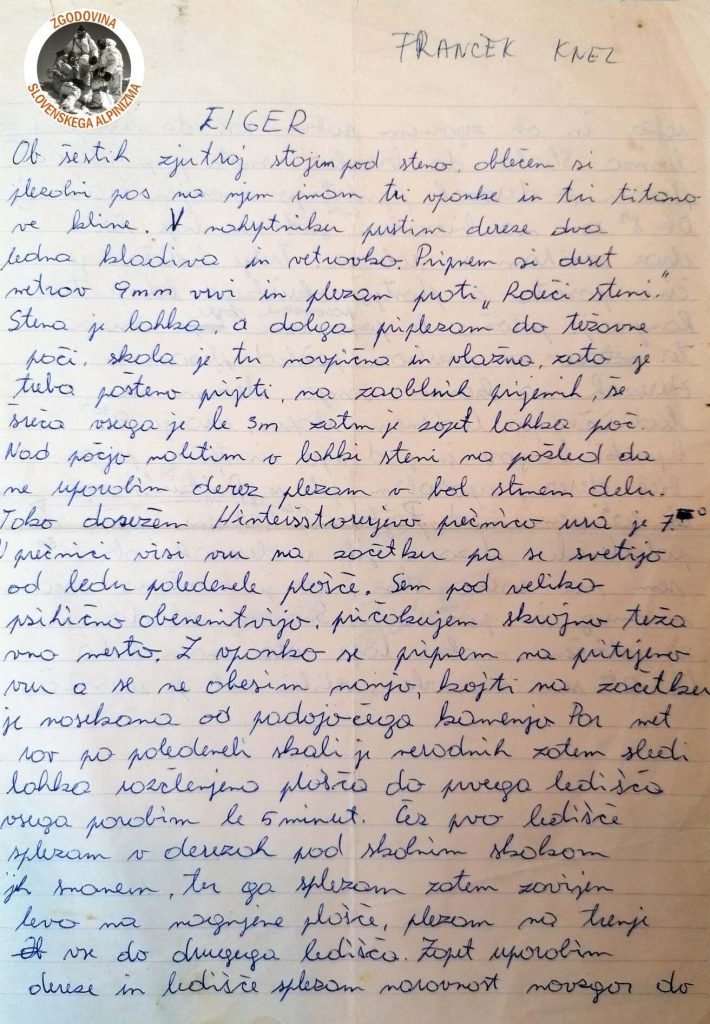 ZGODOVINA
SLOVENSKEGA ALPINIZMA
FRANCEK KNEZ
EIGER
Ob šestih zjutraj stojim pod steno, oblečem si
plezalni pas na njem imam tri vponke in tri titano
ve kline. V nahrptniku pustim dereze dva
ledna kladiva in vetrovko. Pripnem si deset
metrov 9mm vrvi in plezam proti „Rdeči steni."
Stena je lahka, a dolga priplezam do težavne
poči, skala je tu navpična in vlažna, zato je
treba pošteno prijeti, na zaoblenih prijemih, še
sreča vsega je le 5m zatem je zopet lahka poč.
Nad počjo naletim v lahki steni na požled da
ne uporabim derez plezam v bol strmem delu.
Tako dosežem Hinterstoisserjevo prečnico ura je 7.
V prečnici visi vrv na začetku pa se svetijo
od ledu poledenele plošče. Sem pod veliko
psihično obremenitvijo, pričakujem skrajno teža
vno mesto. Z vponko se pripnem na pritrjeno
vrv a se ne obesim nanjo, kajti na začetku
je nasekana od padajočega kamenja. Par met
rov po poledeneli skali je nerodnih zatem sledi
lahka razčlenjena plošča do prvega ledišča
vsega porabim le 5 minut. Čez prvo ledišče
splezam v derezah pod skalnim skokom
jih snamem, ter ga splezam zatem zavijem
levo na nagnjene plošče, plezam na trenje
vse do drugega ledišča. Zopet uporabim
dereze in ledišče splezam naravnost navzgor do